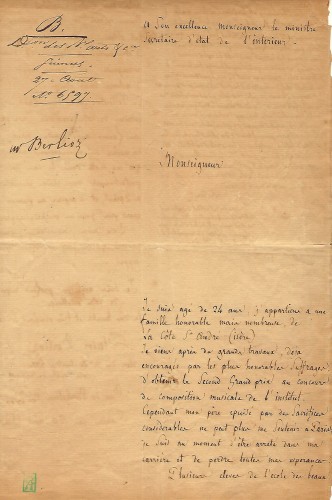 B.
des
Sciences.
27 Août
No 6597
Mr Berlioz
A Son excellence monseigneur le ministre
Secrétaire d'état de l'intérieur.
Monseigneur
Je suis agé de 24 ans j'appartiens a une
famille honorable mais nombreuse de
La Côte St André (isère)
Je viens après de grands travaux, déja
encouragés par les plus honorables suffrages
d'obtenir le Second Grand prix au concours
de composition musicale de l'institut.
Cependant mon père épuisé par des sacrifices
considérables ne peut plus me soutenir à Paris
Je suis au moment d'être arrêté dans ma
carrière et de perdre toutes mes espérances
Plusieurs élèves de l'école des beaux